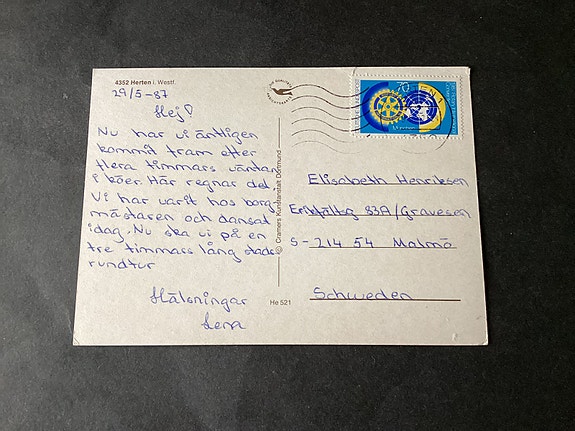 4352 Herten i. Westf.
29/5-87
Hej!
Nu har vi äntligen
kommit fram efter
flera timmars väntan
i köer. Här regnar det.
Vi har varit hos borg-
mästaren och dansat
idag. Nu ska vi på en
tre timmars lång stads
rundtur
Hälsningar
Lena
© Cramers Kunstanstalt Dortmund
He 521
70
Elisabeth Henriksen
83A/Gravesen
S-214 54 Malmö
Schweden